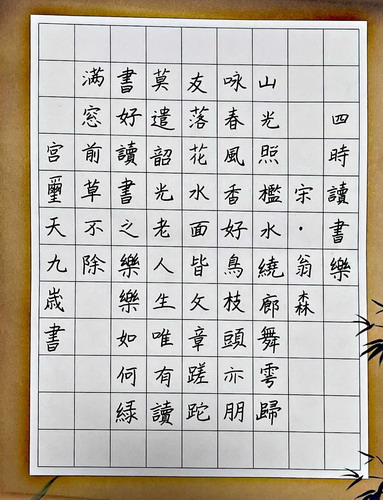 四時讀書樂
宋·翁森
山光照檻水繞廊舞雩歸
咏春風香好鳥枝頭亦朋
友落花水面皆文章蹉跎
莫遣韶光老人生唯有讀
書好讀書之樂樂如何緑
满窓前草不除
宫璽天九歲書